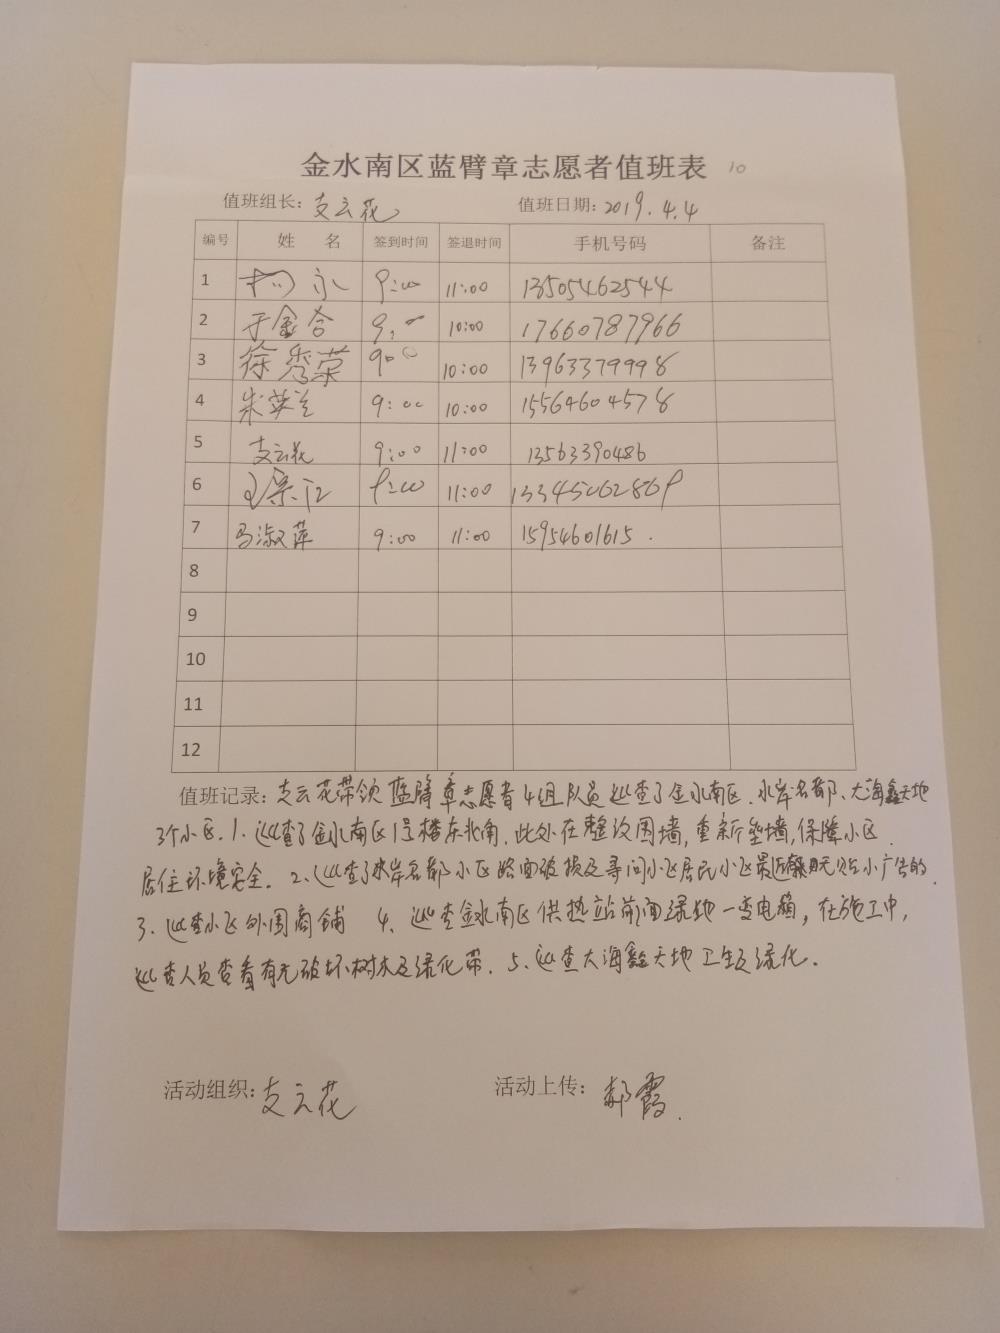 金水南区蓝臂章志愿者值班表 10
值班组长: 支云花 值班日期: 2019.4.4
编号 姓 名 签到时间 签退时间 手机号码 备注
1 杨 9:00 11:00 13505462544
2 于金合 9: 10:00 17660787966
3 徐秀荣 900 10:00 13963379998
4 朱英兰 9:00 10:00 15564604578
5 支云花 9:00 11:00 13563390486
6 9:00 11:00 13345062869
7 马淑萍 9:00 11:00 15954601615.
8
9
10
11
12
值班记录: 支云花带领蓝臂章志愿者4组队员巡查了金水南区、水岸名都、大海鑫天地
3个小区.1.巡查了金水南区1号楼东北角,此处在整改围墙,重新垒墙,保障小区
居住环境安全。2、巡查了水岸名都小区路面破损及寻问小区居民小区最近有无贴小广告的.
3、巡查小区外围商铺 4、巡查金水南区供热站前面绿地一变电箱,在施工中,
巡查人员查看有无破坏树木及绿化带.5、巡查大海鑫天地卫生及绿化.
活动组织: 支云花 活动上传: 郝霞.